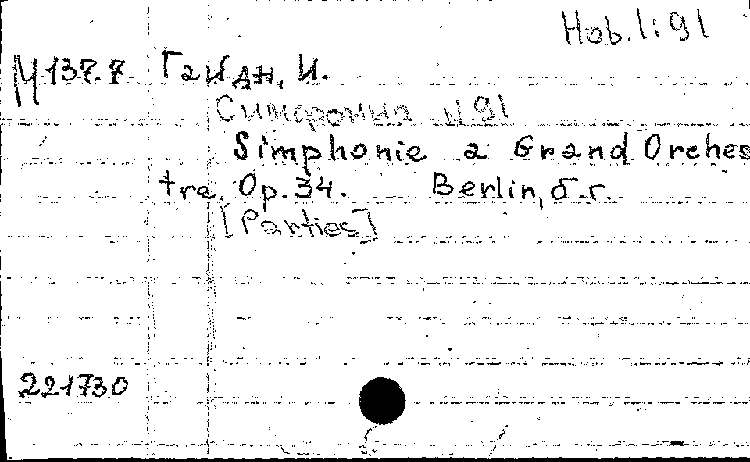 Hob.I:91
М137.7 Гайдн, И.
Симфония N 91
Simphonie a Grand Orches
tre. Op.34. Berlin, б.г.
[Parties]
221730